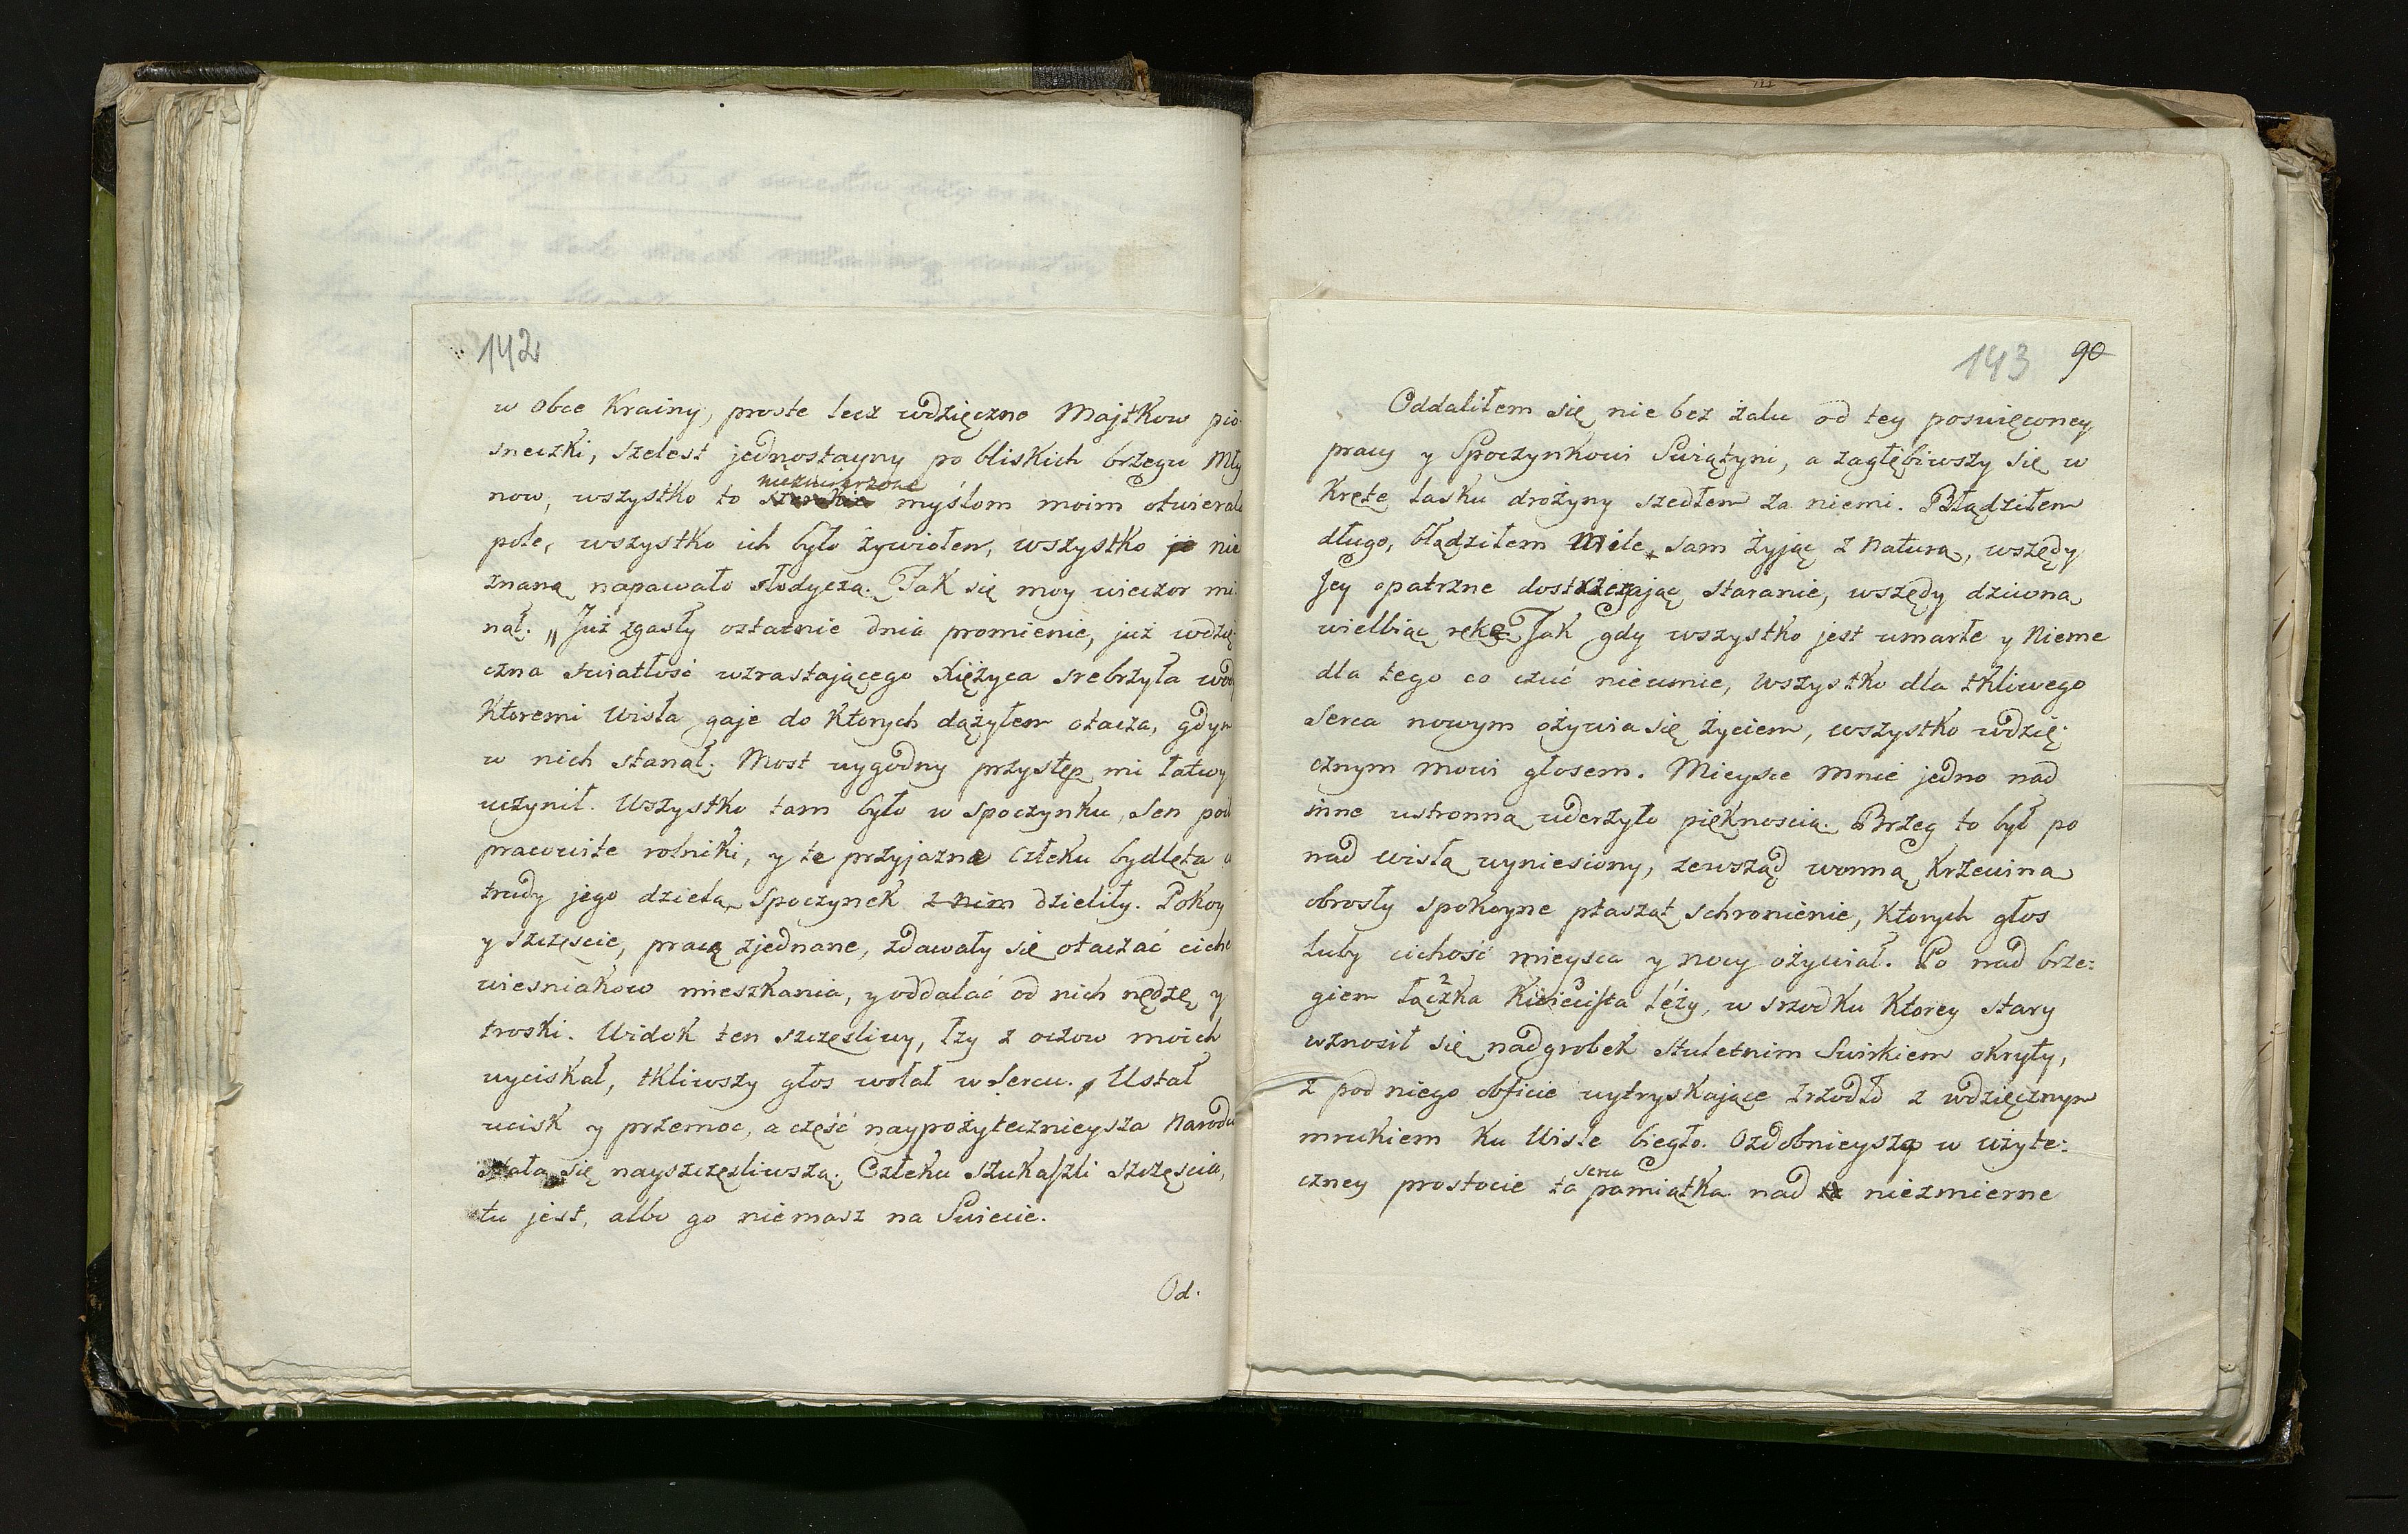 142
w obce Krainy, proste lecz wdzięczne Majtkow pio-
sneczki, szelest jednostayny po bliskich brzegu Mły
niezmierzone
now, wszystko to szerokie myślom moim otwierało
pole, wszystko ich było żywiołem, wszystko je nie
znaną napawało słodyczą. Tak się moy wieczor mi-
nął. „ Już zgasły ostatnie dnia promienie, już wdzię
czna swiatłość wzrastającego Xiężyca srebrzyła wody
Ktoremi Wisła gaje do Ktorych dążyłem otacza, gdym
w nich stanął. Most wygodny przystęp mi łatwy
uczynił. Wszystko tam było w spoczynku, Sen
pracowite rolniki, y te przyjazne Człeku bydlęta
trudy jego dzielą, Spoczynek z nim dzieliły. Pokoy
y szczęscie, pracą zjednane, zdawały się otaczać ciche
wiesniakow mieszkania, y oddalać od nich nędzę y
troski. Widok ten szczęśliwy, łzy z oczow moich
wyciskał, tkliwszy głos wołał w Sercu. „ Ustał
ucisk y przemoc, a część naypożytecznieysza Narodu
stała się nayszczęsliwszą. Człeku szukaszli szczęscia,
tu jest, albo go niemasz na Swiecie.
Od.
143 90
Oddaliłem się nie bez żalu od tey poswięconey
pracy y Spoczynkowi Swiątyni, a zagłębiwszy się w
Kręte lasku drożyny szedłem za niemi. Błądziłem
długo, błądziłem mile, sam żyjąc z Naturą, wszędy
Jey opatrzne dostrzegając staranie, wszędy dziwną
wielbiąc rękę. Jak gdy wszystko jest umarłe y Nieme
dla tego co czuć nieumie, wszystko dla tkliwego
Serca nowym ożywia się życiem, wszystko wdzię-
cznym mowi głosem. Mieysce mnie jedno nad
inne ustronną uderzyło pięknoscią. Brzeg to był po
nad wisłą wyniesiony, zewsząd wonną Krzewiną
obrosły spokoyne ptasząt schronienie, Ktorych głos
luby cichość mieysca y nocy ożywiał. Po nad brze:
giem łączka Kwiecista leży, w srzodku Ktorey stary
wznosił się nadgrobek stuletnim Swirkiem okryty,
z pod niego obficie wytryskające zrzodło z wdzięcznym
mrukiem ku Wisle biegło. Ozdobnieysza w użyte:
sercu
czney prostocie ta pamiątka nad te niezmierne